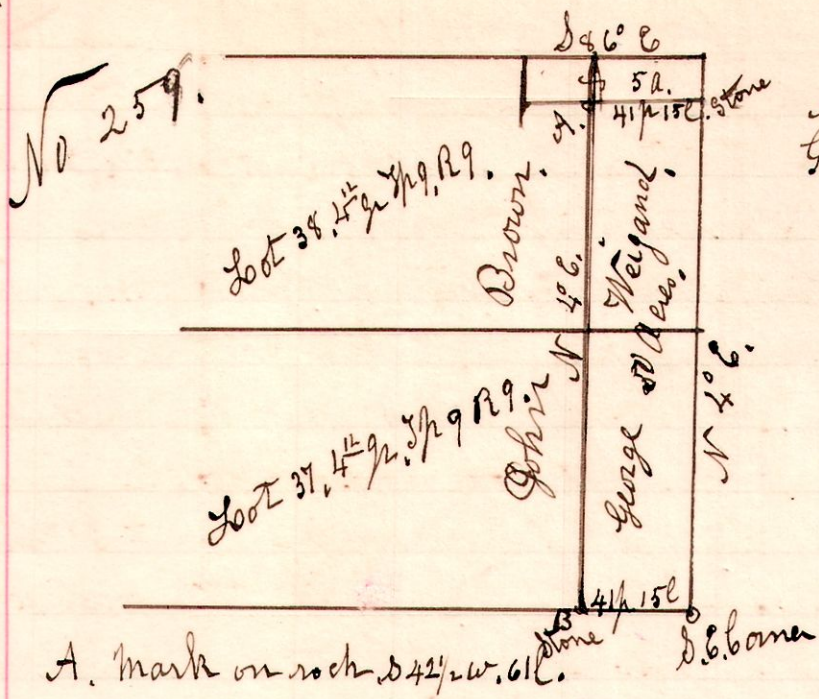 No 259.
S 86° E
5 a.
41p 15l. Stone
A.
Lot 38, 4th qr Tp 9, R 9.
John Brown.
N 4° E.
George Weigand,
50 Acres.
N 4° E.
Lot 37, 4th qr. Tp 9 R 9.
41p 15l
B
Stone
S.E. Corner
A. Mark on rock S 42½ W. 61l.